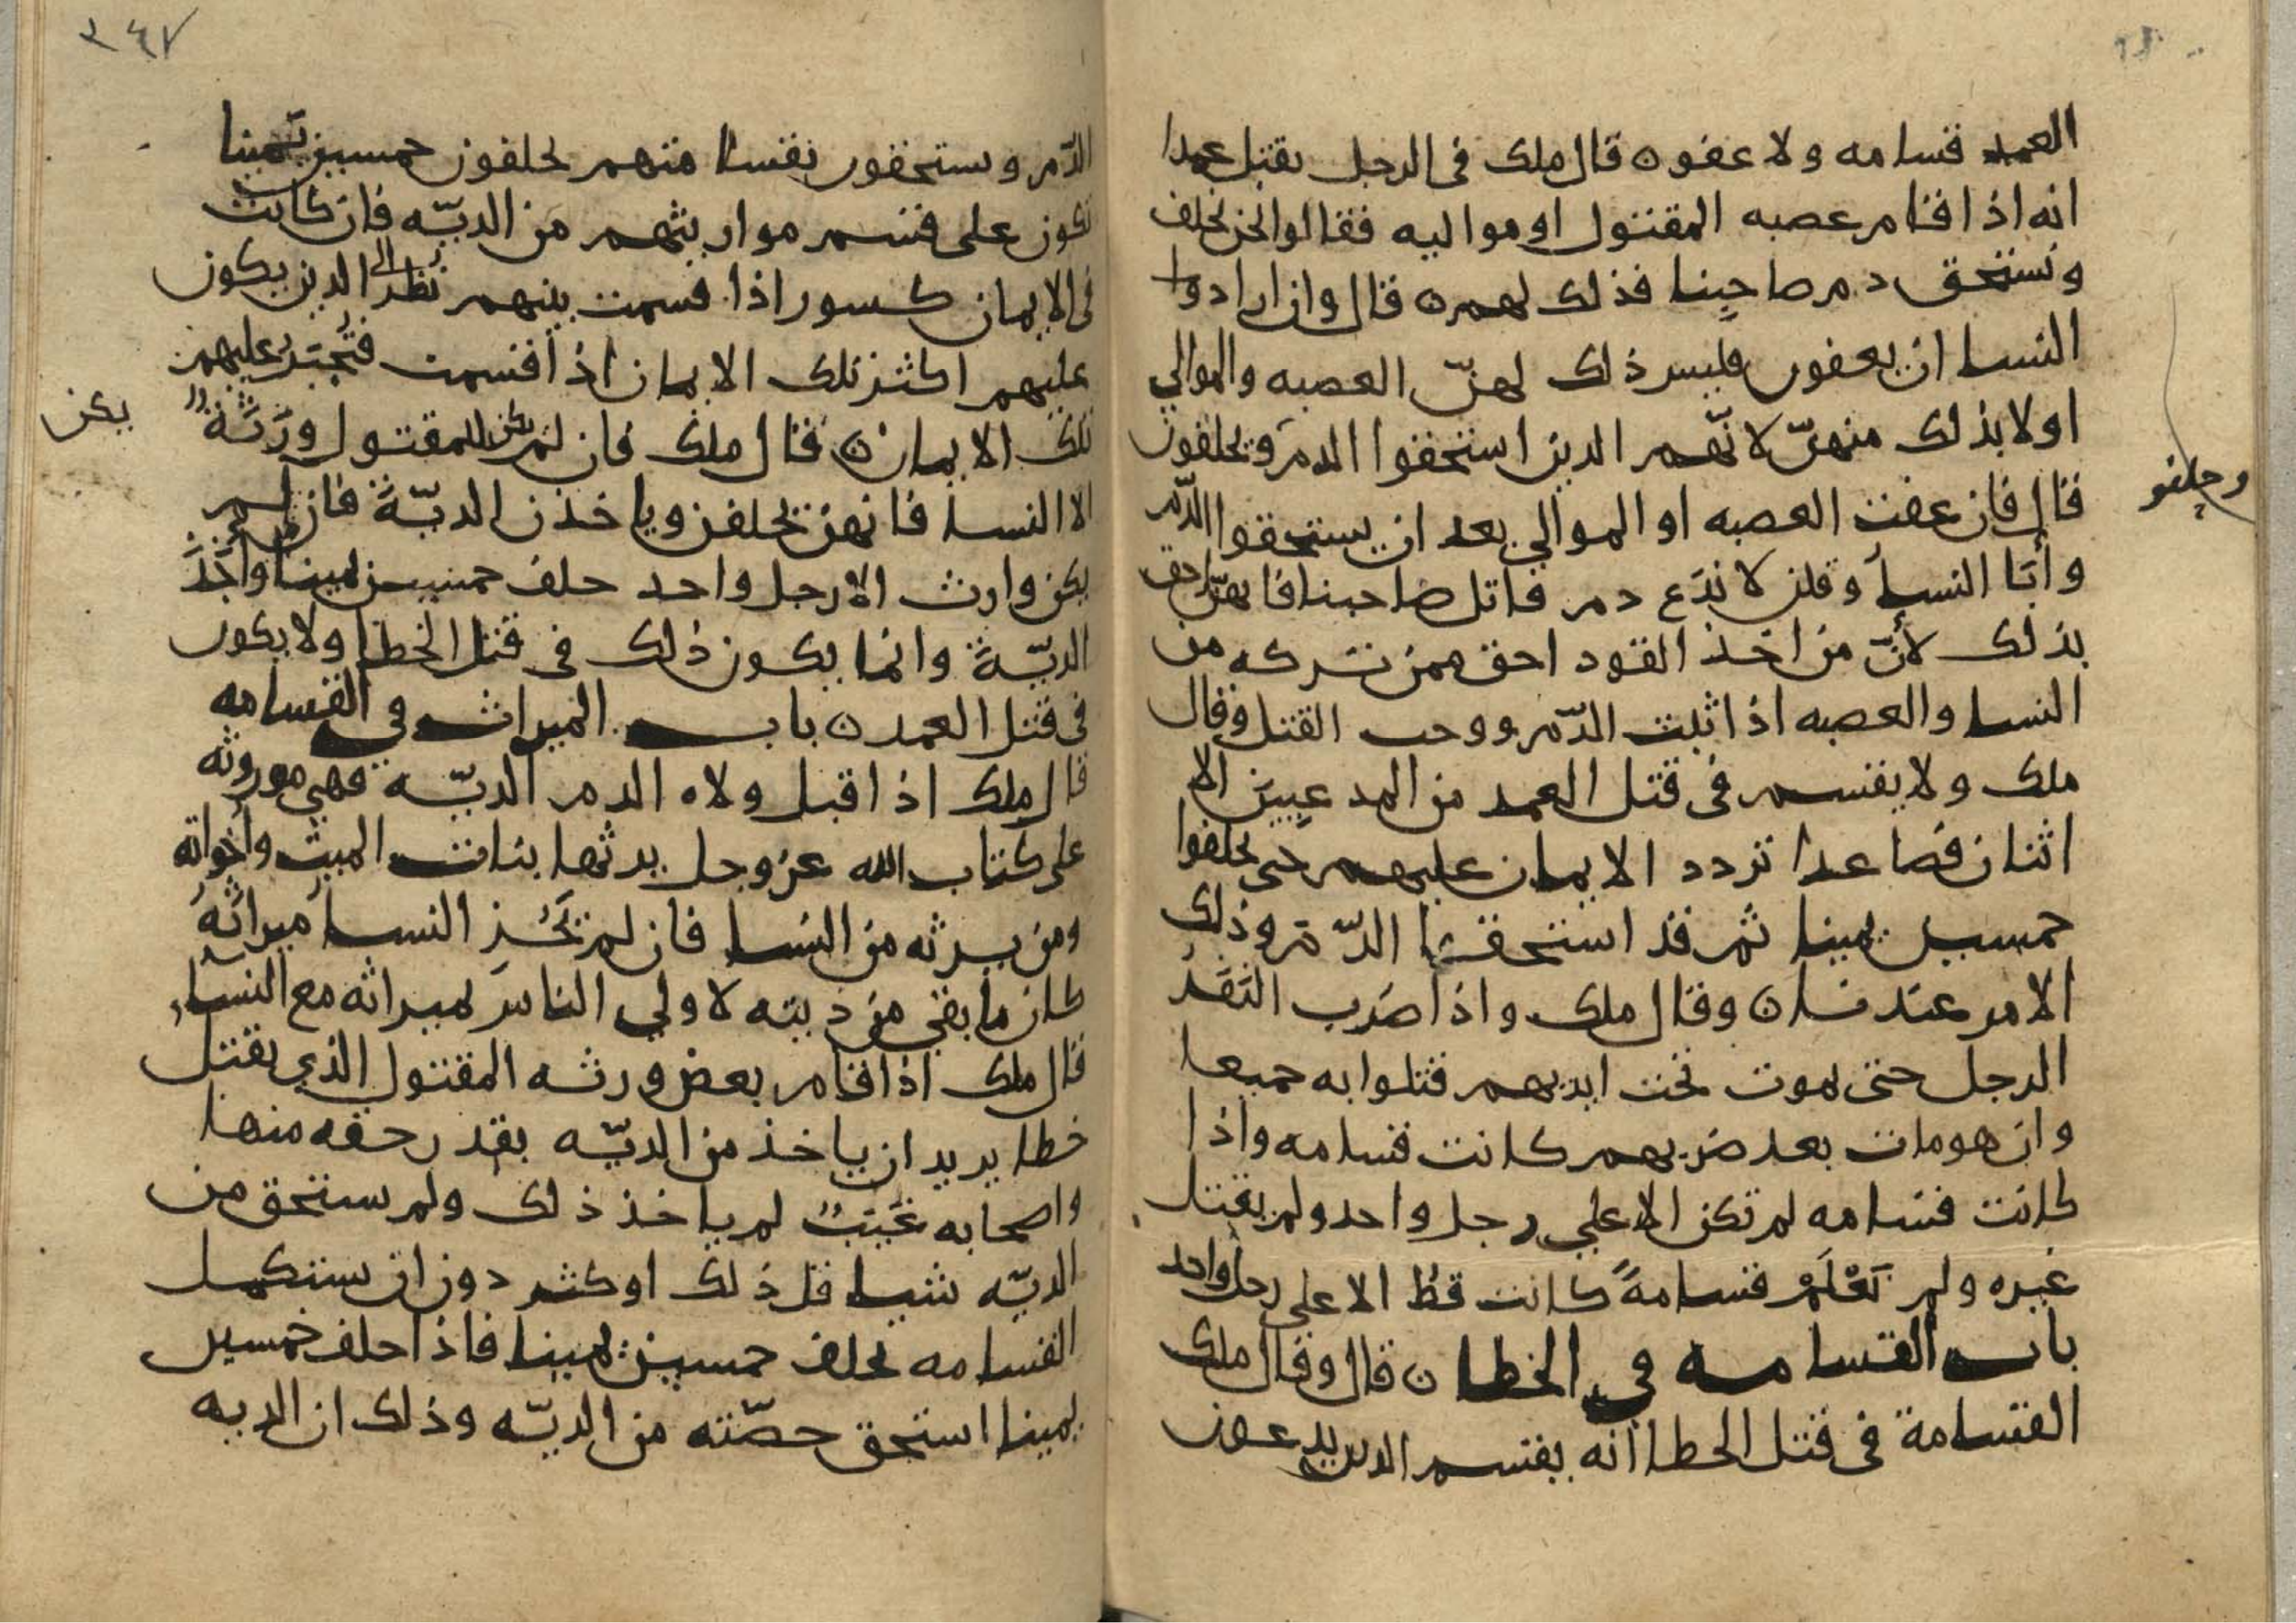 العمد قسامه ولا عفو ٥ قال ملك فى الرجل يقتل عمدا
انه اذا قام عصبه المقتول او مواليه فقالوا نحن نحلف
ونستحق دم صاحبنا فذلك لهم ٥ قال وان ارادوا
النسا ان يعفون فليس ذلك لهنّ العصبه والموالي
اولا بذلك منهنّ لانّهم الذين استحقوا الدم وحلفون
وحلفو
قال فان عفت العصبه او الموالي بعد ان يستحقوا الدّم
وأبَا النسا وقلن لا ندَع دم قاتل صاحبنا فانهنّ احق
بذلك لأنّ من اخذ القود احق ممن تركه من
النسا والعصبه اذا ثبت الدّم ووجب القتل وقال
ملك ولا يقسم فى قتل العمد من المدعيين الا
اثنان فصاعدا تردد الايمان عليهم حتى يحلفوا
خمسين يمينا ثم قد استحقوا الدّم وذلك
الامر عندنا ٥ وقال ملك واذا ضرب النَفَر
الرجل حتى يموت تحت ايديهم قتلوا به جميعا
وان هو مات بعد ضربهم كانت قسامه واذا
كانت قسامه لم تكن الا علي رجل واحد ولم يقتل
غيره ولم نَعْلَمْ قسامةً كانت قط الا على رجل واحد
باب القسامه في الخطا ٥ قال وقال ملك
القسامة فى قتل الخطا انه يقسم الذين يدعون
الدّم ويستحقون بقسامتهم يحلفون خمسين يَمينا
تكون على قسم مواريثهم من الديّه فان كانت
فى الايمان كسور اذا قسمت بينهم نُظر الى الذين يكون
عليهم اكثر تلك الايمان اذا قسمت فتُجبَر عليهم
تلك الايمان ٥ قال ملك فان لم يكن للمقتول ورَثَة
يكن
الا النسا فانهن يحلفن وياخذن الديّة فان لم
يكن وارث الا رجل واحد حلف خمسين يمينا وأخَذَ
الديّةَ وانما يكون ذلك فى قتل الخطا ولا يكون
فى قتل العمد ٥ باب الميراث في القسامه
قال ملك اذا قبل ولاه الدم الديّه فهي موروثه
على كتاب الله عز وجل يرثها بنات الميت واخواته
ومن يرثه من النسا فان لم تَحُز النسا ميراثهُ
كان ما بقي من ديته لاولي الناس بميراثه مع النسا
قال ملك اذا قام بعض ورثه المقتول الذي يقتل
خطا يريد ان ياخذ من الديّه بقدر حقه منها
واصحابه غَيَبٌ لم ياخذ ذلك ولم يستحق من
الديّه شيا قل ذلك او كثر دون ان يستكمل
القسامه يحلف خمسين يمينا فاذا حلف خمسين
يمينا استحق حصّته من الديّه وذلك ان الديه